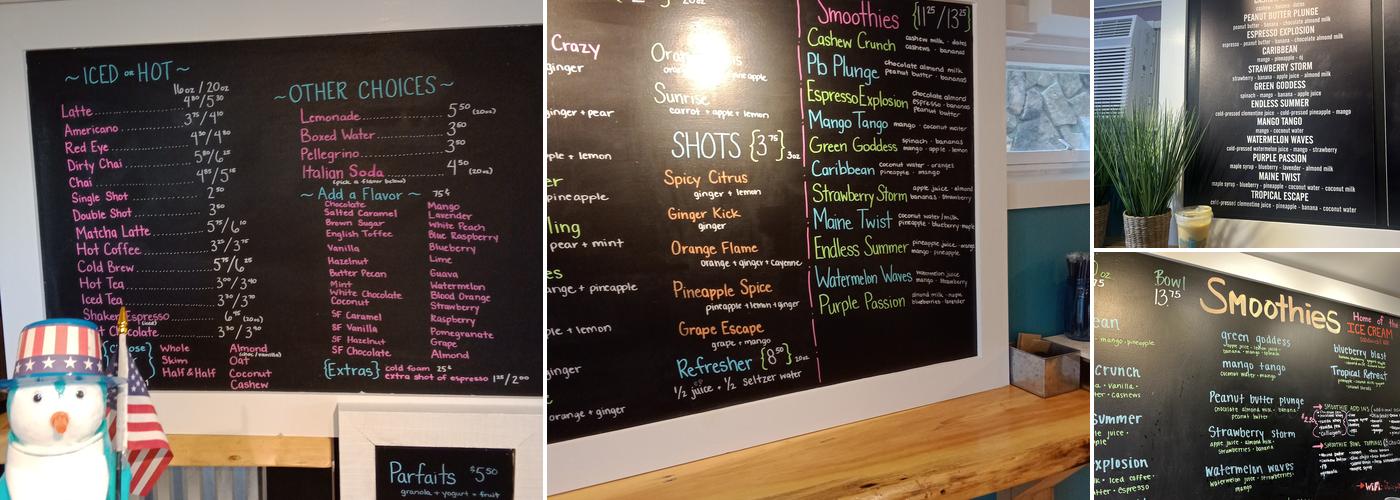 ~ ICED or HOT ~
16oz / 20oz
Latte 4⁸⁰/5³⁰
Americano 3⁷⁵/4¹⁰
Red Eye 4³⁰/4⁸⁰
Dirty Chai 5⁸⁰/6²⁵
Chai 4⁸⁵/5¹⁵
Single Shot 2⁵⁰
Double Shot 3⁵⁰
Matcha Latte 5⁷⁵/6¹⁰
Hot Coffee 3²⁵/3⁷⁵
Cold Brew 5⁷⁵/6²⁵
Hot Tea 3⁰⁰/3⁴⁰
Iced Tea 3³⁰/3⁷⁰
Shaken Espresso 6⁹⁵ (20oz)
Chocolate 3³⁰/3⁹⁰
Whole Almond
Skim Oat
Half & Half Coconut
Cashew
~ OTHER CHOICES ~
Lemonade 5⁵⁰ (20oz)
Boxed Water 3⁵⁰
Pellegrino 3⁵⁰
Italian Soda 4⁵⁰ (20oz)
(pick a flavor below)
~ Add a Flavor ~ 75¢
Chocolate Mango
Salted Caramel Lavender
Brown Sugar White Peach
English Toffee Blue Raspberry
Vanilla Blueberry
Hazelnut Lime
Butter Pecan Guava
Mint Watermelon
White Chocolate Blood Orange
Coconut Strawberry
SF Caramel Raspberry
SF Vanilla Pomegranate
SF Hazelnut Grape
SF Chocolate Almond
{Extras} cold foam 25¢
extra shot of espresso 1²⁵/2⁰⁰
Parfaits $5⁵⁰
granola + yogurt + fruit
Crazy
ginger
ginger + pear
ple + lemon
er
pineapple
ling
pear + mint
es
ange + pineapple
ple + lemon
ginger
orange + ginger
Sunrise
carrot + apple + lemon
SHOTS {3⁷⁵} 3oz
Spicy Citrus
ginger + lemon
Ginger Kick
ginger
Orange Flame
orange + ginger + cayenne
Pineapple Spice
pineapple + lemon + ginger
Grape Escape
grape + mango
Refresher {8⁵⁰} 20oz
1/2 juice • 1/2 seltzer water
Smoothies {11²⁵/13²⁵}
Cashew Crunch cashew milk • dates
cashews • bananas
Pb Plunge chocolate almond milk
peanut butter • bananas
Espresso Explosion chocolate almond
espresso • bananas
peanut butter
Mango Tango mango • coconut water
Green Goddess spinach • bananas
mango • apple • lemon
Caribbean coconut water • oranges
pineapple • mango
Strawberry Storm apple juice • almond
bananas • strawberry
Maine Twist coconut water/milk
pineapple • blueberry • maple
Endless Summer pineapple juice • mango
mango • pineapple
Watermelon Waves watermelon juice
mango • strawberry
Purple Passion
cashew - banana - dates
PEANUT BUTTER PLUNGE
peanut butter - banana - chocolate almond milk
ESPRESSO EXPLOSION
espresso - peanut butter - banana - chocolate almond milk
CARIBBEAN
mango - pineapple - oj
STRAWBERRY STORM
strawberry - banana - apple juice - almond milk
GREEN GODDESS
spinach - mango - banana - apple juice
ENDLESS SUMMER
cold-pressed clementine juice - cold-pressed pineapple - mango
MANGO TANGO
mango - coconut water
WATERMELON WAVES
cold-pressed watermelon - mango - strawberry
PURPLE PASSION
maple syrup - blueberry - lavender - almond milk
MAINE TWIST
maple syrup - blueberry - pineapple - coconut water - coconut milk
TROPICAL ESCAPE
cold-pressed clementine juice - pineapple - banana - coconut water
oz
Bowl
13⁷⁵
Smoothies
Home of the
ICE CREAM
ean
mango • pineapple
Crunch
a • vanilla •
• cashews
ummer
e juice •
xplosion
k • Iced coffee
tter • espresso
green goddess
apple juice • lemon juice •
banana • mango • spinach
mango tango
coconut water • mango
Peanut butter plunge
chocolate almond milk • banana
peanut butter
Strawberry Storm
apple juice • almond milk •
strawberries • banana
watermelon waves
watermelon juice • strawberries •
mango
blueberry blast
Tropical Retreat
SMOOTHIE ADD INS
SMOOTHIE BOWL TOPPINGS
WiFi